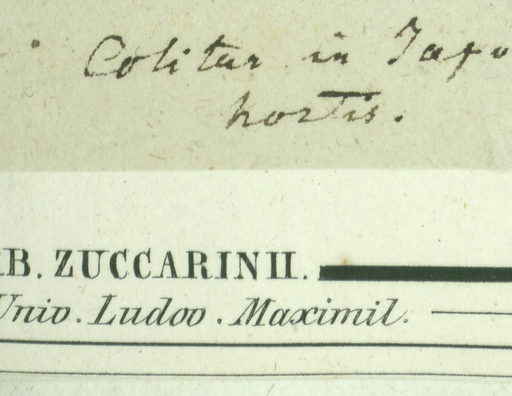 Colitur in Japo
hortis.
RB. ZUCCARINII.
Univ. Ludov. Maximil.